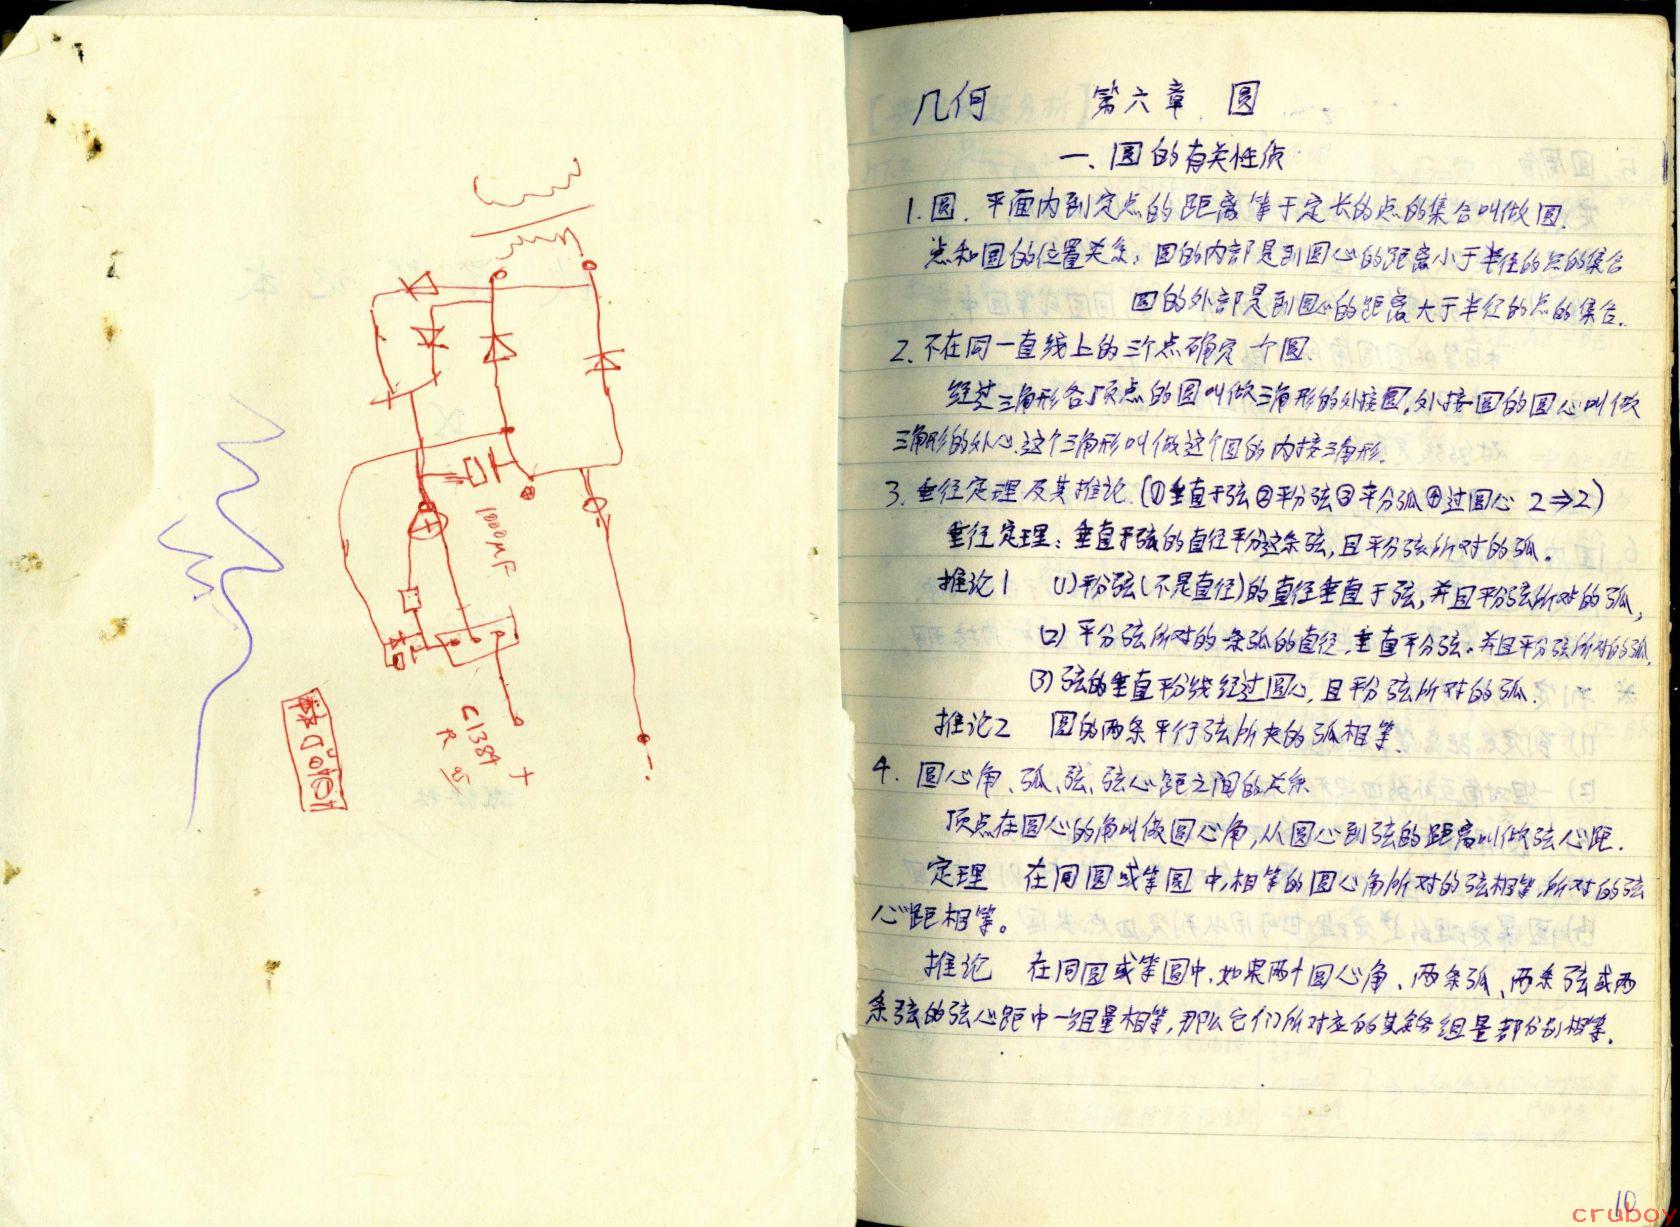 1000μF
C1384
R
+
几何 第六章 圆
一、圆的有关性质
1.圆. 平面内到定点的距离等于定长的点的集合叫做圆.
点和圆的位置关系: 圆的内部是到圆心的距离小于半径的点的集合
圆的外部是到圆心的距离大于半径的点的集合.
2.不在同一直线上的三个点确定一个圆.
经过三角形各顶点的圆叫做三角形的外接圆,外接圆的圆心叫做
三角形的外心.这个三角形叫做这个圆的内接三角形.
3.垂径定理及其推论.(①垂直于弦②平分弦③平分弧④过圆心 2⇒2)
垂径定理: 垂直于弦的直径平分这条弦,且平分弦所对的弧。
推论1 (1)平分弦(不是直径)的直径垂直于弦,并且平分弦所对的弧,
(2)平分弦所对的一条弧的直径,垂直平分弦。并且平分弦所对的弧.
(3)弦的垂直平分线经过圆心,且平分弦所对的弧.
推论2 圆的两条平行弦所夹的弧相等.
4.圆心角、弧、弦、弦心距之间的关系
顶点在圆心的角叫做圆心角,从圆心到弦的距离叫做弦心距.
定理 在同圆或等圆中,相等的圆心角所对的弦相等,所对的弦
心距相等。
推论 在同圆或等圆中,如果两个圆心角、两条弧、两条弦或两
条弦的弦心距中一组量相等,那么它们所对应的其余各组量都分别相等.
10
cruboy